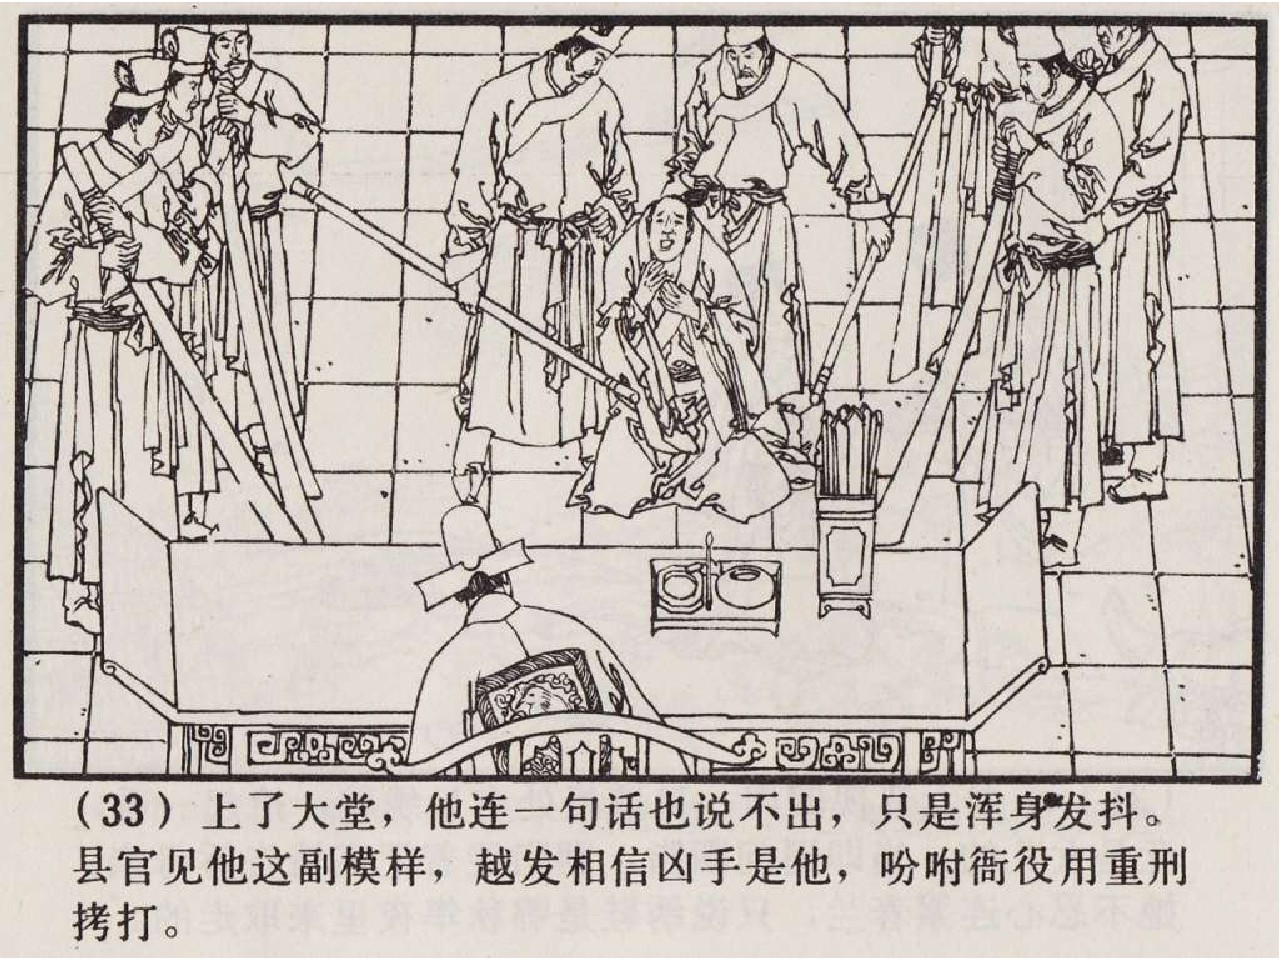 (33) 上了大堂，他连一句话也说不出，只是浑身发抖。
县官见他这副模样，越发相信凶手是他，吩咐衙役用重刑
拷打。